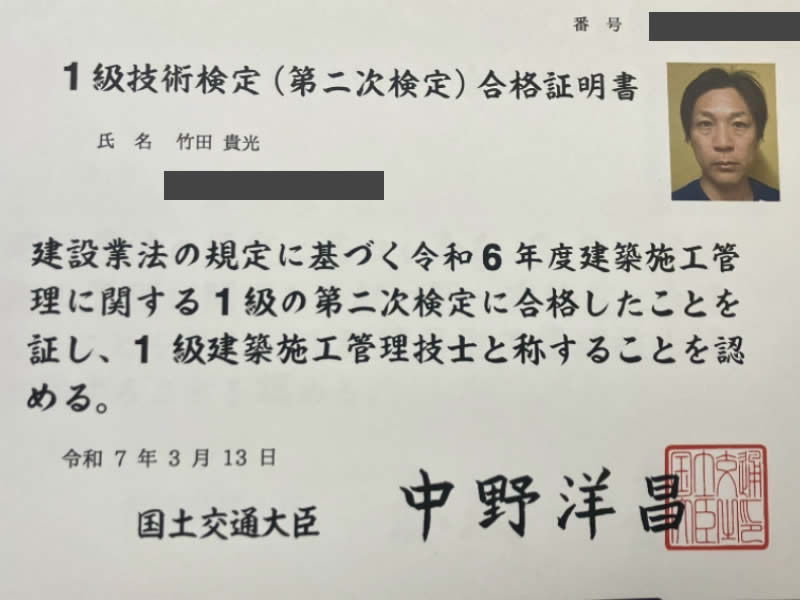 番 号
1級技術検定(第二次検定)合格証明書
氏 名 竹田 貴光
建設業法の規定に基づく令和6年度建築施工管
理に関する1級の第二次検定に合格したことを
証し、1級建築施工管理技士と称することを認
める。
令和 7 年 3 月 13 日
国土交通大臣 中野洋昌